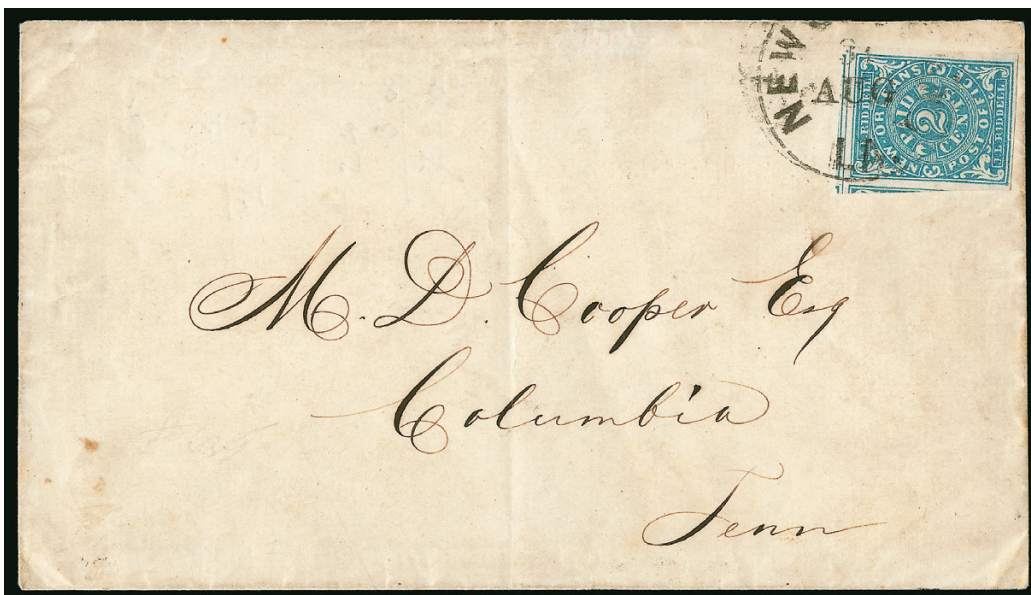 NEW
AUG
LA
J.L. RIDDELL
NEW ORLEANS POST OFFICE
PAID 2 CENTS
2 2
RIDDELL
M. D. Cooper Esq
Columbia
Tenn